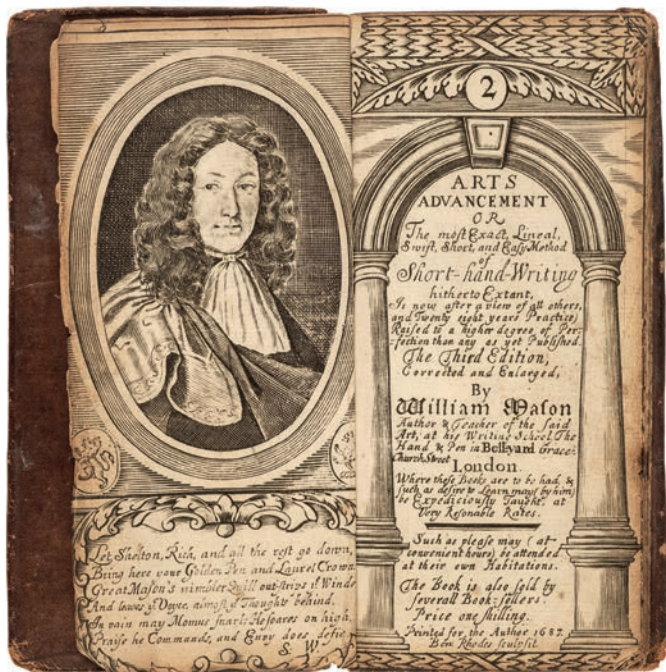 Let Shelton, Rich, and all the rest go down,
Bring here your Golden Pen and Laurel Crown
Great Mason's nimbler Quill out-strips yͤ Winde
And leaves yͤ Voyce, almost yͤ Thoughts behind.
In vain may Momus snarl; He soares on high,
Praise he Commands, and Envy does defie.
S. W.
2
ARTS
ADVANCEMENT
OR
The most Exact, Lineal,
Swift, Short, and Easy Method
of
Short-hand-Writing
hitherto Extant,
Is now after a view of all others,
and Twenty eight years Practice,
Raised to a higher degree of Per-
-fection than any as yet Published.
The Third Edition,
Corrected and Enlarged,
By
William Mason
Author & Teacher of the said
Art, at his Writing School The
Hand & Pen in Bell-yard Grace-
Church Street
London.
Where these Books are to be had, &
such as desire to Learn may (by him)
be Expeditiously Taught, at
Very Resonable Rates.
Such as please may (at
convenient houres) be attended
at their own Habitations.
The Book is also sold by
severall Book-sellers.
Price one shilling.
Printed for the Author 1687.
Ben: Rhodes sculpsit